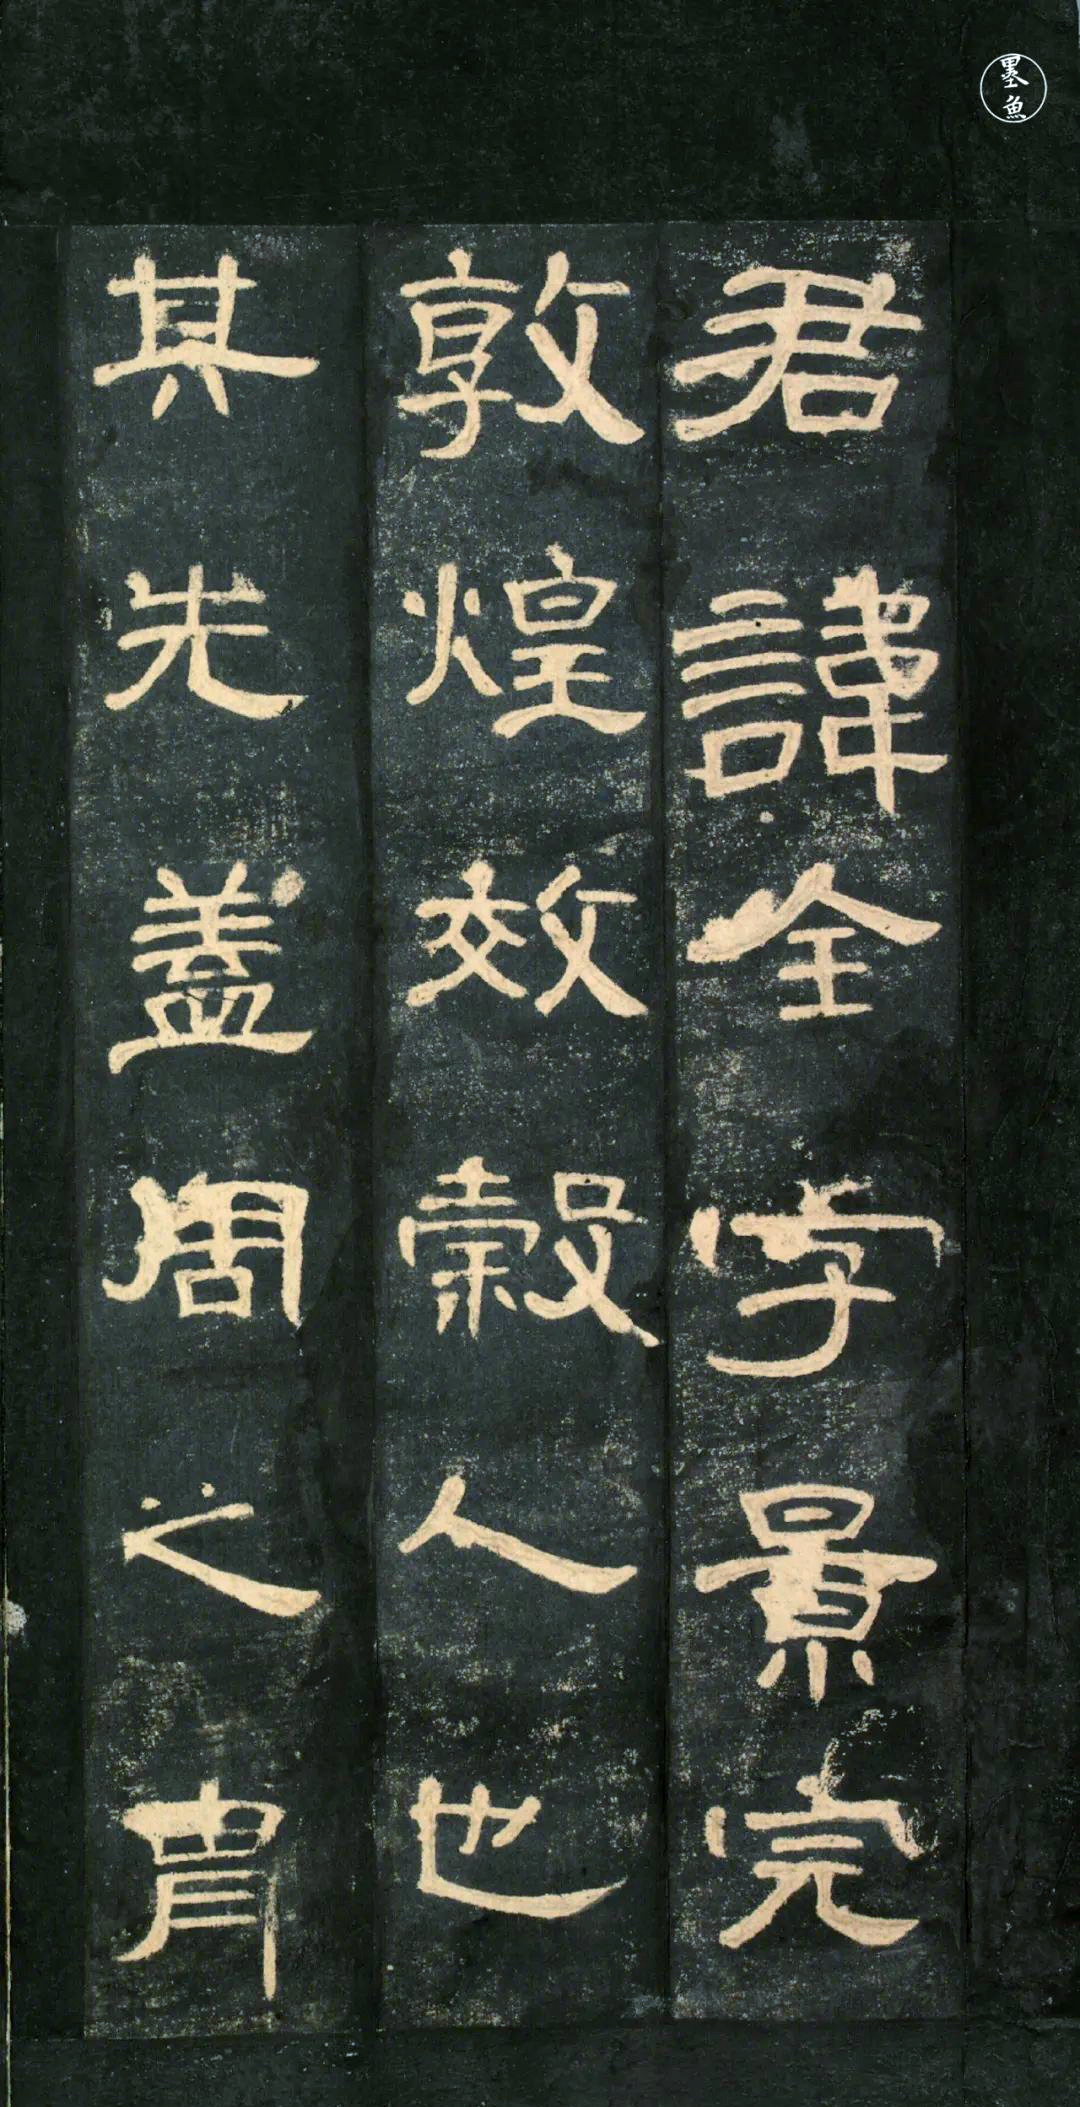 君諱全字景完
敦煌效穀人也
其先蓋周之胄
墨魚